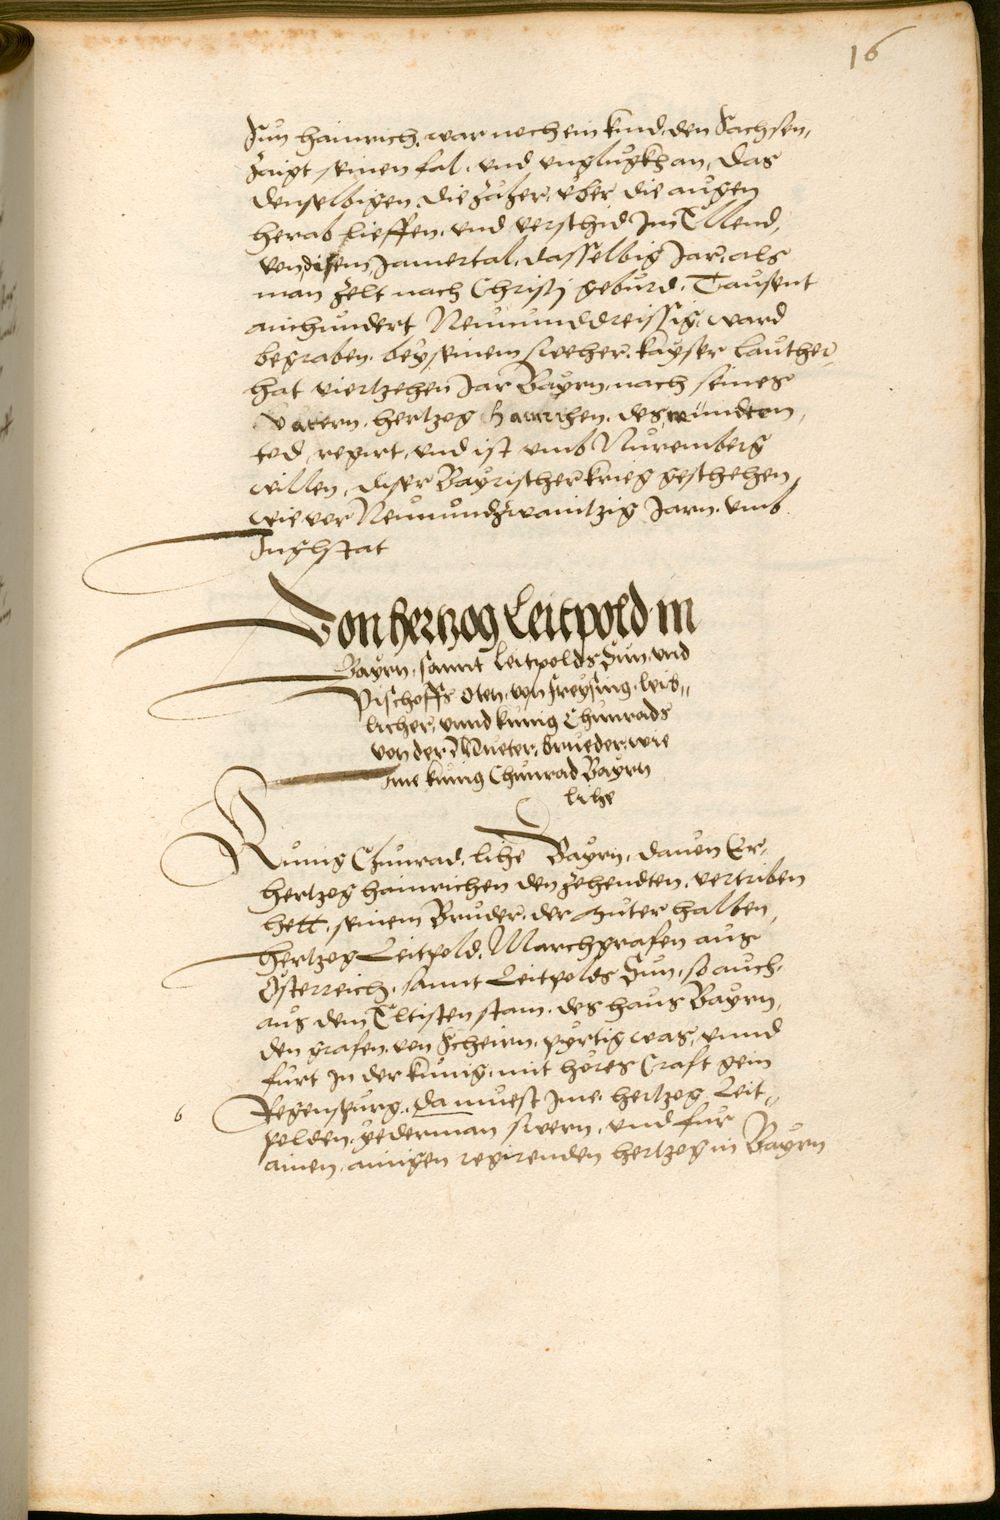 16
Sun hainrich, war noch ein kind, den Sachsen,
Zaigt seinen fal, und unglugkh an, das
denselbigen, die Zäher, über die augen
herab lieffen, und verschid Im Ellend,
von disem Jamertal, dasselbig Jar, als
man zelt nach Christj geburd, Tausent
ainhundert Neunundreissig, ward
begraben, bey seinem sweher, kayser Lauther,
hat viertzehen Jar Bayrn, nach seines
Vatern, hertzog Hainrichen, des neundten,
tod, regirt, und ist umb Nuremberg
willen, diser Bayrischer krieg geschehen,
wie vor Neunundzwaintzig Jarn, umb
Inglstat
Von hertzog Leitpold in
Bayrn, sannt Leitpolds Sun, und
Bischoffs Oten, von Freysing, leib„
licher, unnd kunig Chunrads
von der Mueter, brueder, wie
Ime kunig Chunrad Bayrn
lihe
Kunig Chunrad, lihe Bayrn, dauon Er,
hertzog hainrichen den zehendten, vertriben
hett, seinem Bruder, der muter halben,
hertzog Leitpold, Marchgrafen aus
Osterreich, sannt Leitpolds Sun, so auch,
aus dem Eltisten stam, des haus Bayrn,
den grafen, von Scheirn, pürtig was, unnd
fürt In der kunig, mit höres Craft gein
6 Regenspurg, da muest Ime, hertzog Leit„
polden, yederman swern, und fur
ainen, ainigen regirenden hertzog in Bayrn